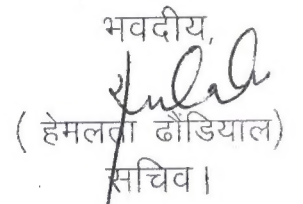 भवदीय,
( हेमलता ढौंडियाल)
सचिव।